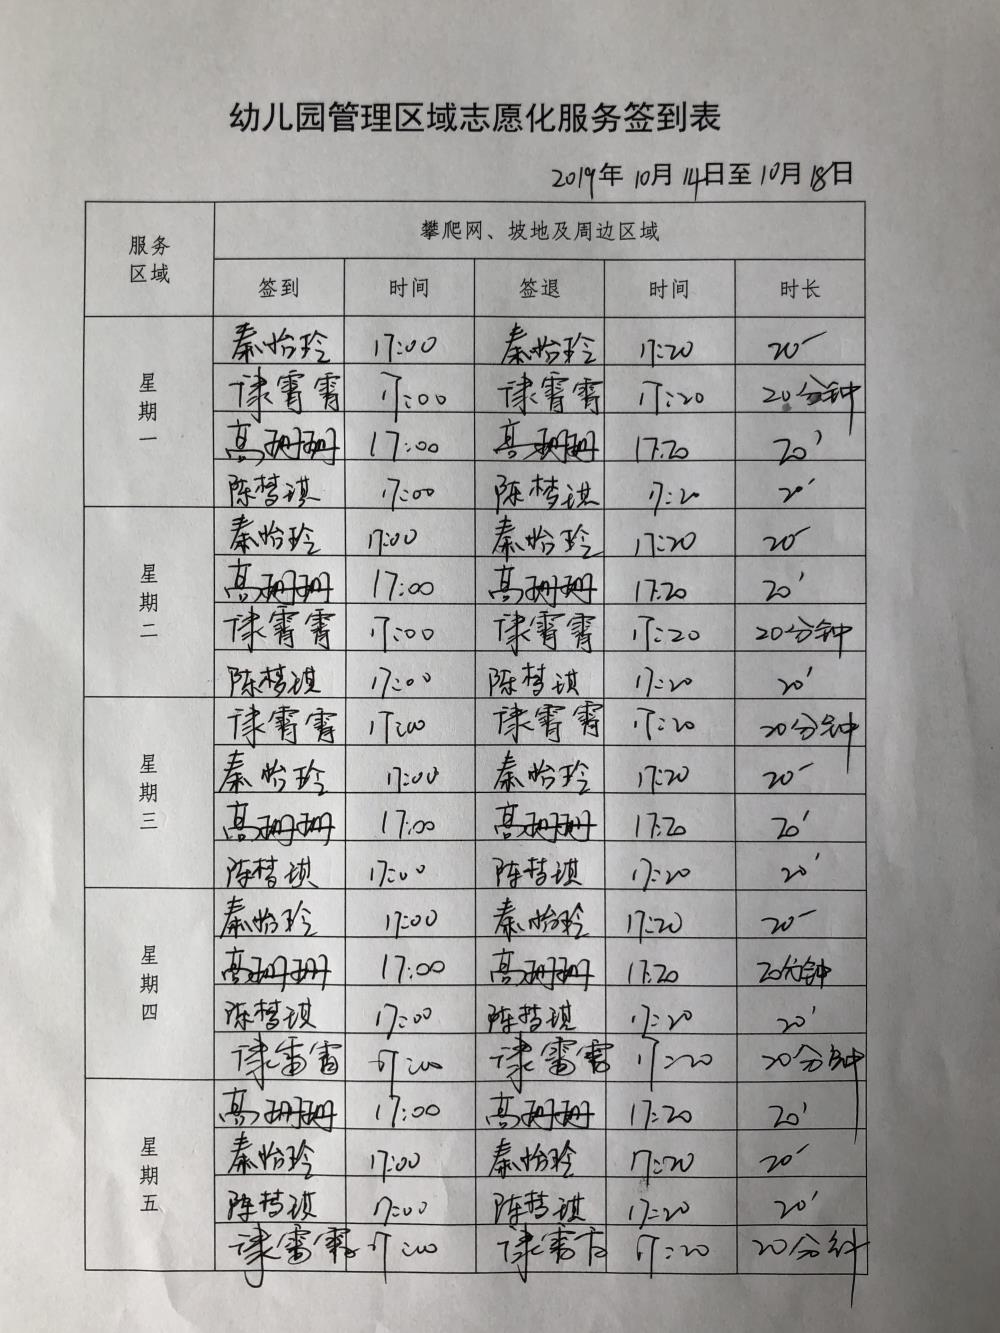 幼儿园管理区域志愿化服务签到表
2019年10月14日至10月18日
服务区域 攀爬网、坡地及周边区域
签到 时间 签退 时间 时长
星期一
秦怡玲 17:00 秦怡玲 17:20 20'
霄霄 17:00 霄霄 17:20 20分钟
高珊珊 17:00 高珊珊 17:20 20'
陈梦琪 17:00 陈梦琪 17:20 20'
星期二
秦怡玲 17:00 秦怡玲 17:20 20'
高珊珊 17:00 高珊珊 17:20 20'
霄霄 17:00 霄霄 17:20 20分钟
陈梦琪 17:00 陈梦琪 17:20 20'
星期三
霄霄 17:00 霄霄 17:20 20分钟
秦怡玲 17:00 秦怡玲 17:20 20'
高珊珊 17:00 高珊珊 17:20 20'
陈梦琪 17:00 陈梦琪 17:20 20'
星期四
秦怡玲 17:00 秦怡玲 17:20 20'
高珊珊 17:00 高珊珊 17:20 20分钟
陈梦琪 17:00 陈梦琪 17:20 20'
霄霄 17:00 霄霄 17:20 20分钟
星期五
高珊珊 17:00 高珊珊 17:20 20'
秦怡玲 17:00 秦怡玲 17:20 20'
陈梦琪 17:00 陈梦琪 17:20 20'
霄霄 17:00 霄霄 17:20 20分钟